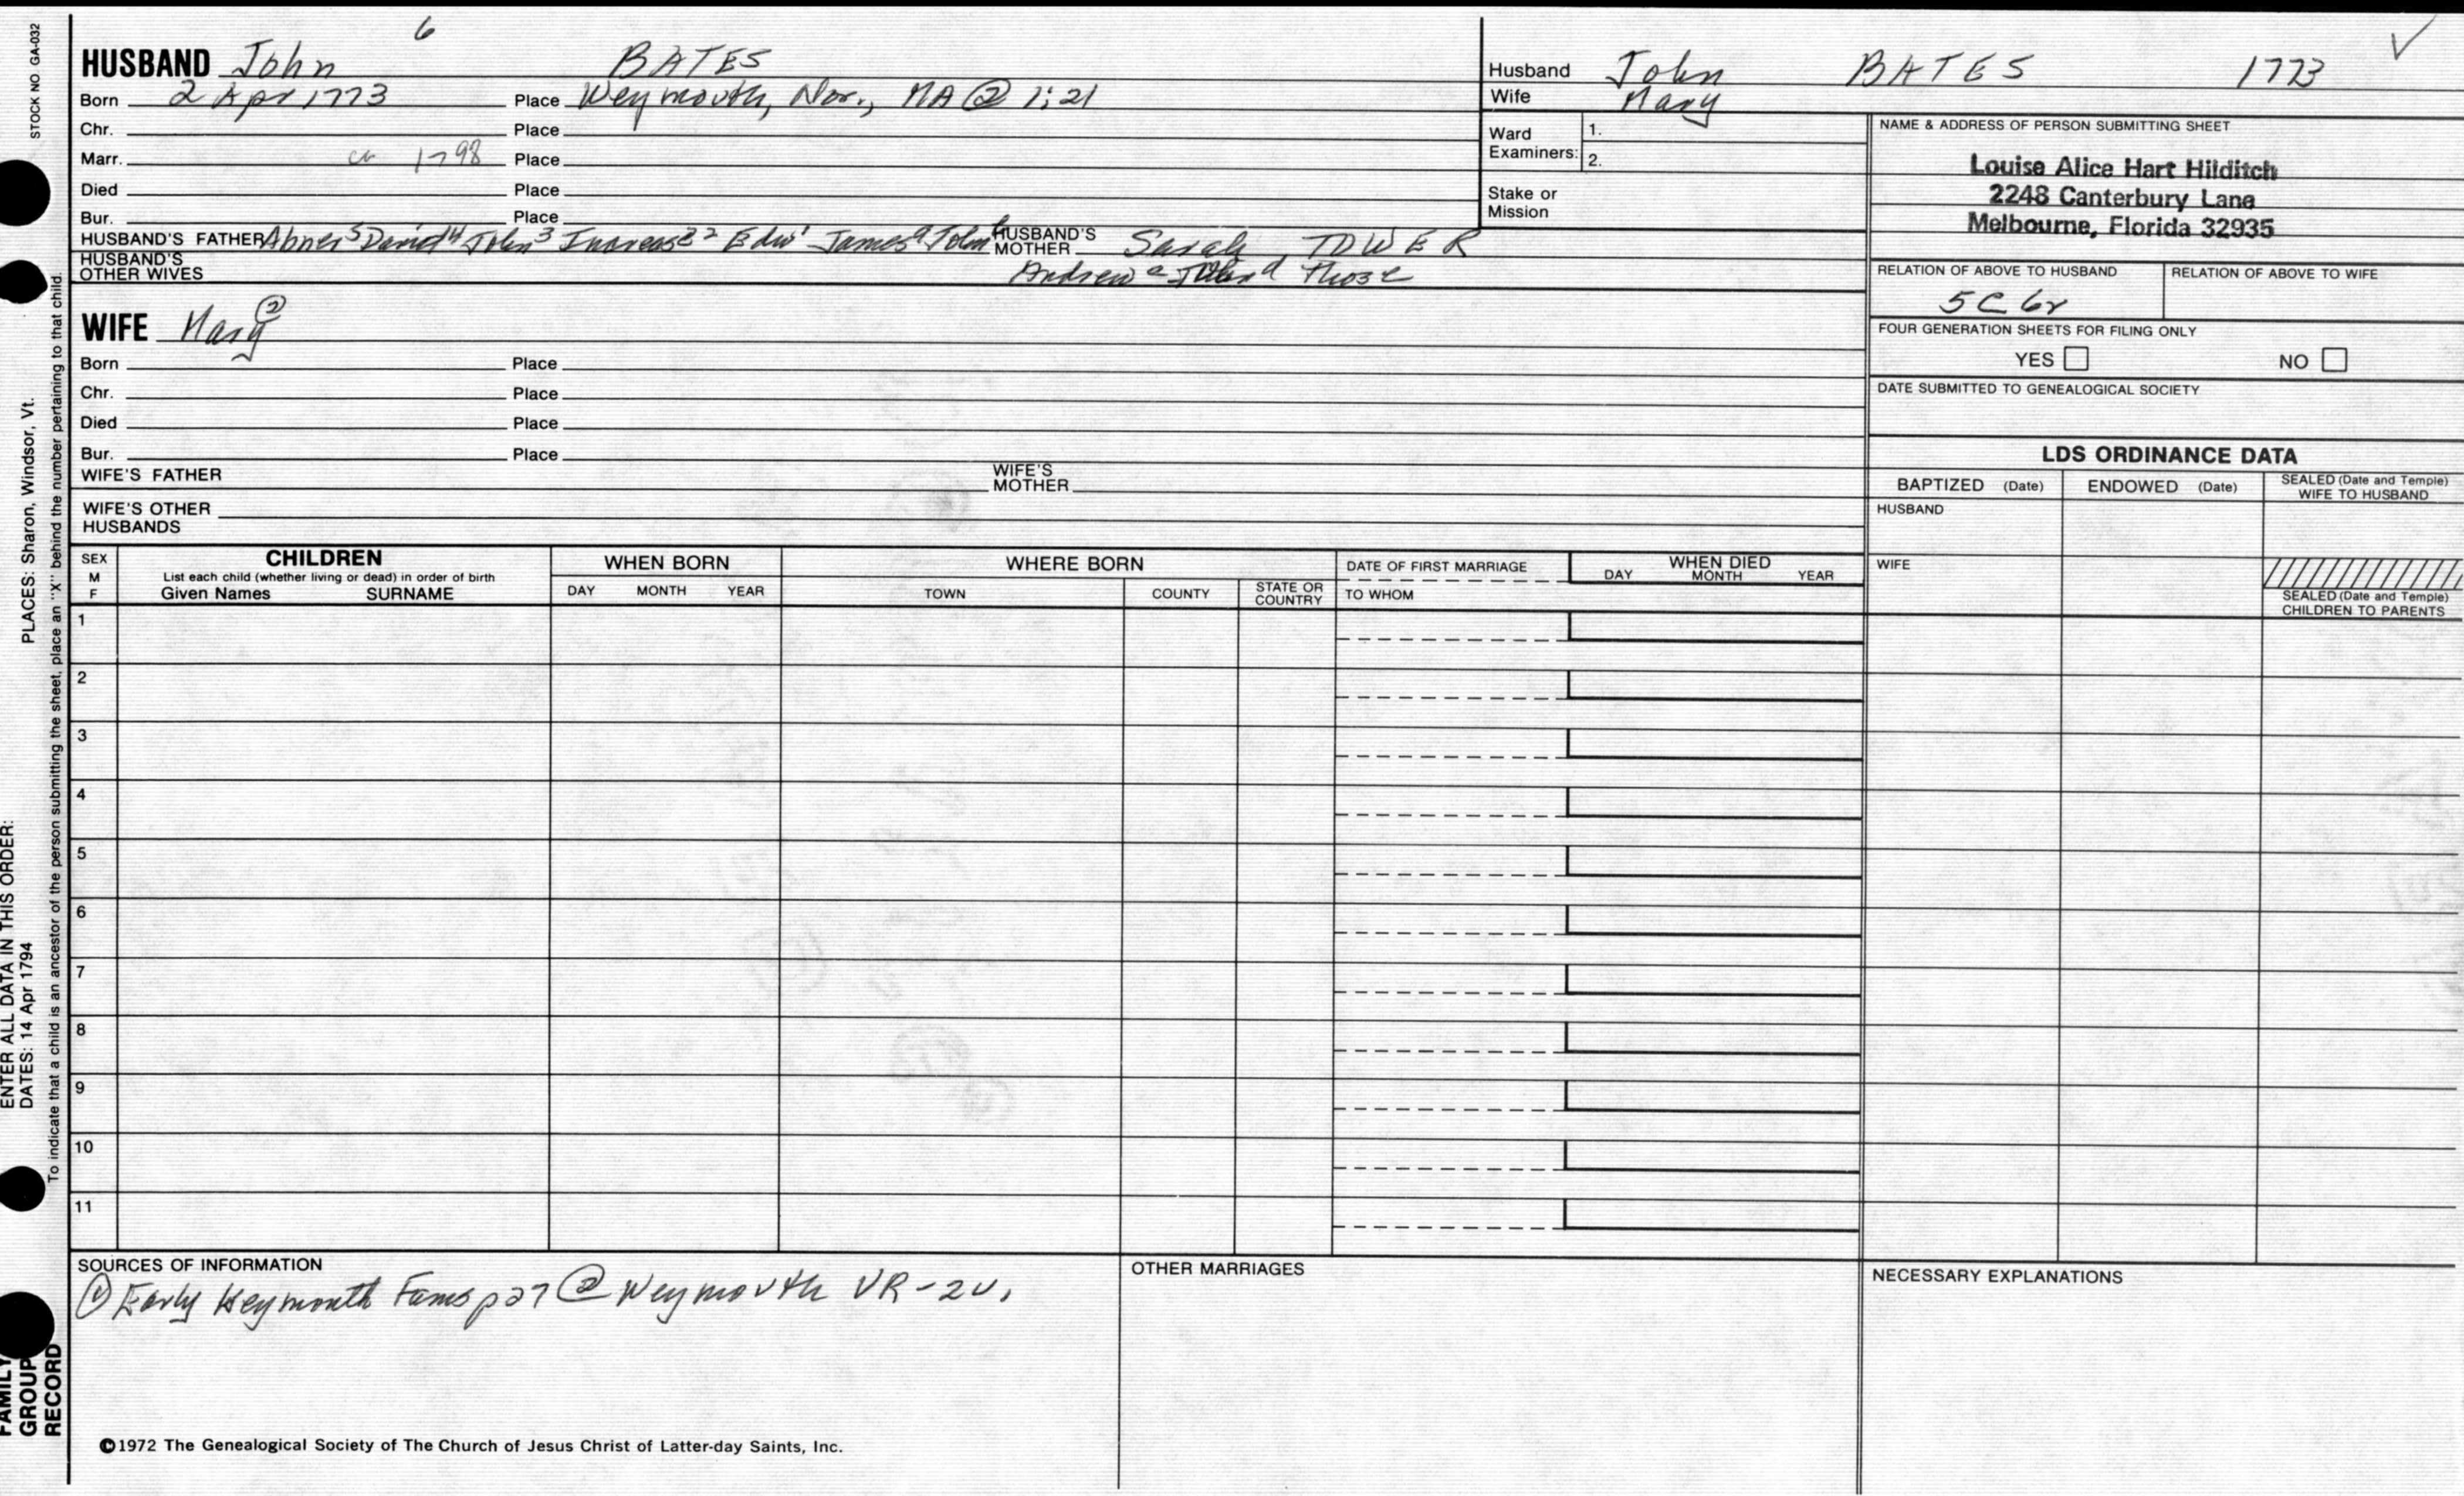 STOCK NO GA-032
6
HUSBAND John BATES
Born 2 Apr 1773 Place Weymouth, Nor., MA @ 1:21
Chr. Place
Marr. ca 1798 Place
Died Place
Bur. Place
HUSBAND'S FATHER Abner 5 David 4 John 3 Increase 2 Edw 1 James a John b HUSBAND'S MOTHER Sarah TOWER
HUSBAND'S OTHER WIVES Andrew c John d Thos e
WIFE Mary ②
Born Place
Chr. Place
Died Place
Bur. Place
WIFE'S FATHER WIFE'S MOTHER
WIFE'S OTHER HUSBANDS
Husband John BATES 1773 ✓
Wife Mary
Ward Examiners: 1.
2.
Stake or Mission
NAME & ADDRESS OF PERSON SUBMITTING SHEET
Louise Alice Hart Hilditch
2248 Canterbury Lane
Melbourne, Florida 32935
RELATION OF ABOVE TO HUSBAND RELATION OF ABOVE TO WIFE
5C 6r
FOUR GENERATION SHEETS FOR FILING ONLY
YES NO
DATE SUBMITTED TO GENEALOGICAL SOCIETY
LDS ORDINANCE DATA
BAPTIZED (Date) ENDOWED (Date) SEALED (Date and Temple) WIFE TO HUSBAND
HUSBAND
WIFE
SEALED (Date and Temple) CHILDREN TO PARENTS
SEX M F
CHILDREN
List each child (whether living or dead) in order of birth
Given Names SURNAME
WHEN BORN
DAY MONTH YEAR
WHERE BORN
TOWN COUNTY STATE OR COUNTRY
DATE OF FIRST MARRIAGE
TO WHOM
WHEN DIED
DAY MONTH YEAR
1
2
3
4
5
6
7
8
9
10
11
SOURCES OF INFORMATION
① Early Weymouth Fams p 27 ② Weymouth VR-2v.
OTHER MARRIAGES
NECESSARY EXPLANATIONS
©1972 The Genealogical Society of The Church of Jesus Christ of Latter-day Saints, Inc.
ENTER ALL DATA IN THIS ORDER:
DATES: 14 Apr 1794 PLACES: Sharon, Windsor, Vt.
To indicate that a child is an ancestor of the person submitting the sheet, place an "X" behind the number pertaining to that child.
FAMILY GROUP RECORD